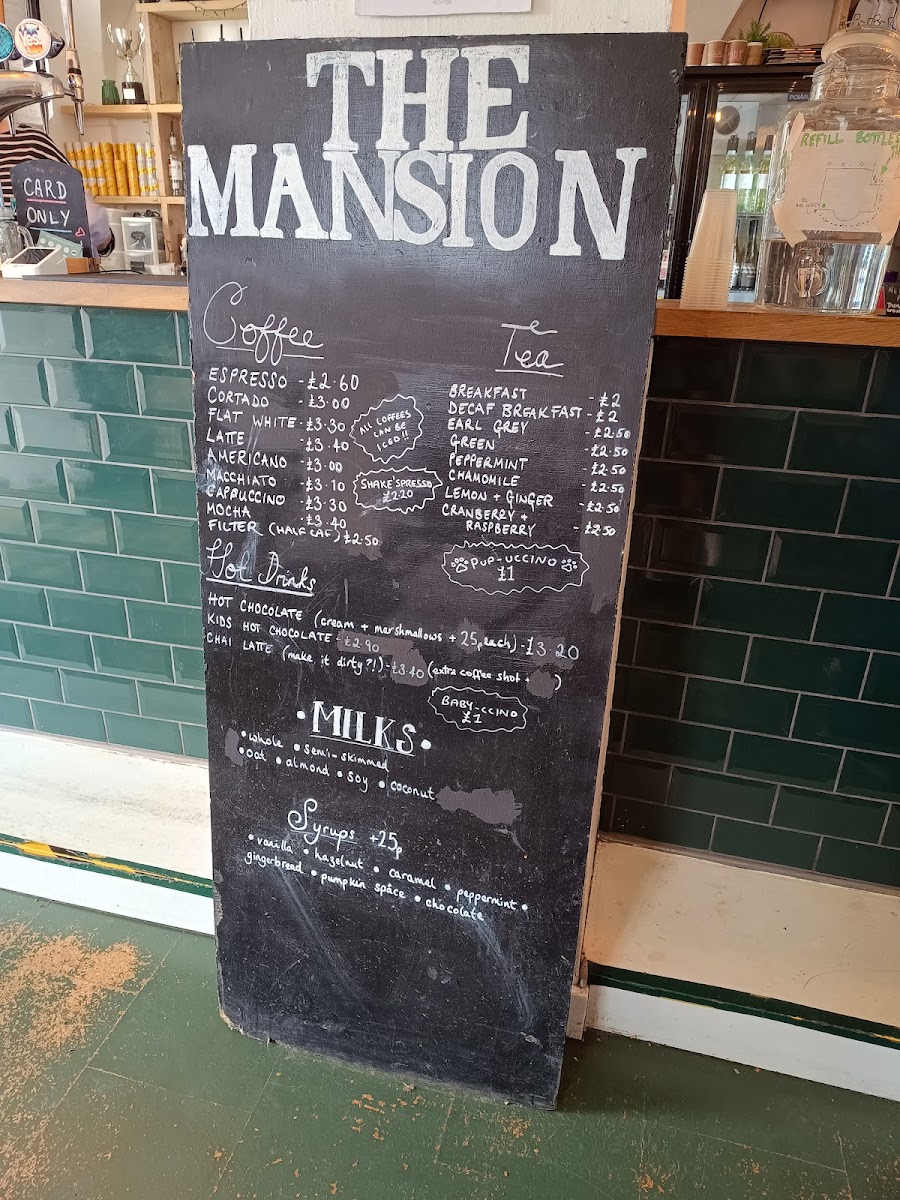 THE
MANSION
CARD
ONLY
REFILL BOTTLES
POLAR
Coffee
ESPRESSO - £2.60
CORTADO - £3.00
FLAT WHITE - £3.30
LATTE - £3.40
AMERICANO - £3.00
MACCHIATO - £3.10
CAPPUCCINO - £3.30
MOCHA - £3.40
FILTER (HALF CAF) £2.50
ALL COFFEES
CAN BE
ICED!!
SHAKE'SPRESSO
£2.20
Tea
BREAKFAST - £2
DECAF BREAKFAST - £2
EARL GREY - £2.50
GREEN - £2.50
PEPPERMINT - £2.50
CHAMOMILE - £2.50
LEMON + GINGER - £2.50
CRANBERRY +
RASPBERRY - £2.50
PUP-UCCINO
£1
Hot Drinks
HOT CHOCOLATE (cream + marshmallows + 25p each) - £3.20
KIDS HOT CHOCOLATE - £2.90
CHAI LATTE (make it dirty?!) - £3.40 (extra coffee shot + )
BABY-CCINO
£1
• MILKS •
• whole • semi-skimmed
• oat • almond • soy • coconut
Syrups +25p
• vanilla • hazelnut • caramel • peppermint •
gingerbread • pumpkin spice • chocolate